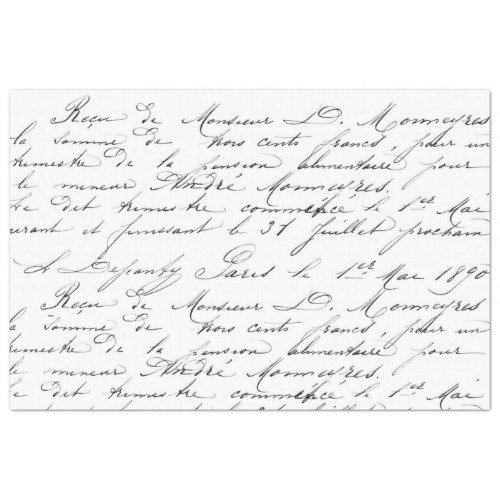 Reçu de Monsieur D. Monneyres
la somme de trois cents francs, pour un
trimestre de la pension alimentaire pour
le mineur André Monneyres.
Le dit trimestre commencé le 1er Mai
urant et finissant le 31 Juillet prochain
Paris le 1er Mai 1890
Reçu de Monsieur D. Monneyres
la somme de trois cents francs, pour un
trimestre de la pension alimentaire pour
le mineur André Monneyres.
Le dit trimestre commencé le 1er Mai